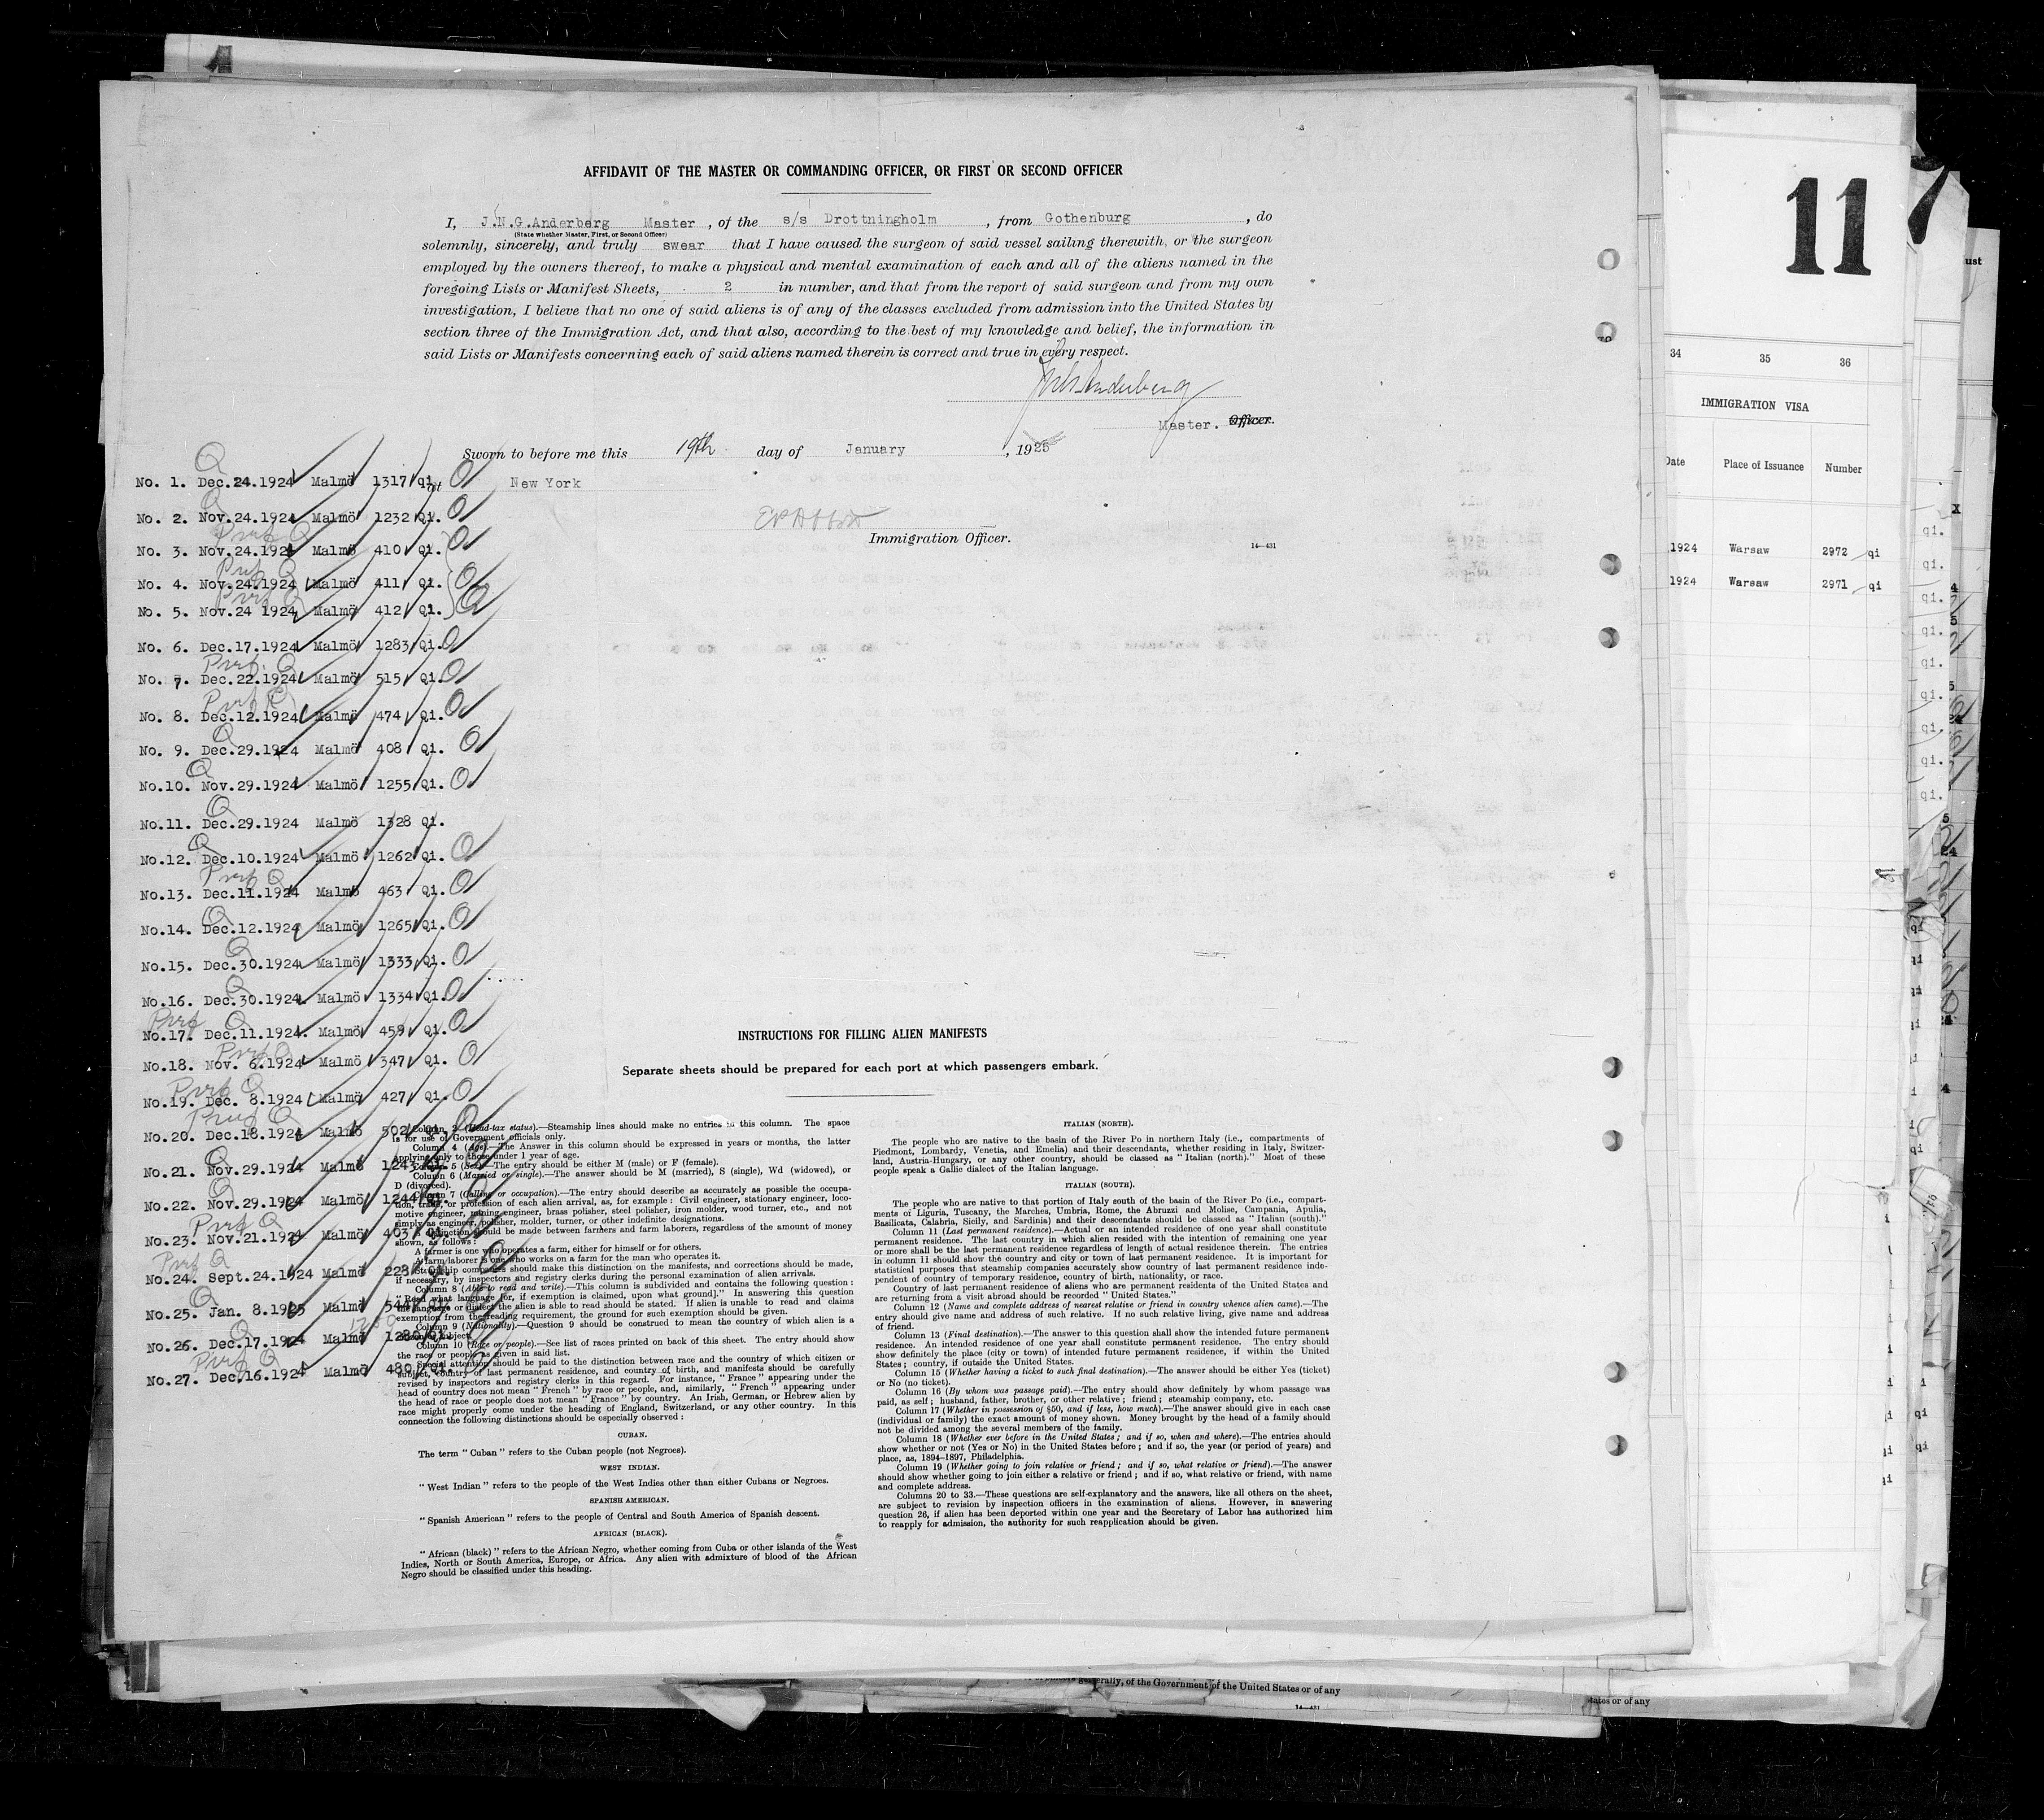 AFFIDAVIT OF THE MASTER OR COMMANDING OFFICER, OR FIRST OR SECOND OFFICER
I, J.N.G.Anderberg Master, of the s/s Drottningholm, from Gothenburg, do
(State whether Master, First, or Second Officer)
solemnly, sincerely, and truly swear that I have caused the surgeon of said vessel sailing therewith, or the surgeon
employed by the owners thereof, to make a physical and mental examination of each and all of the aliens named in the
foregoing Lists or Manifest Sheets, 2 in number, and that from the report of said surgeon and from my own
investigation, I believe that no one of said aliens is of any of the classes excluded from admission into the United States by
section three of the Immigration Act, and that also, according to the best of my knowledge and belief, the information in
said Lists or Manifests concerning each of said aliens named therein is correct and true in every respect.
Master. Officer.
Sworn to before me this 19th day of January, 1925
at New York
Immigration Officer.
14—431
No. 1. Dec.24.1924 Malmö 1317 qi.
No. 2. Nov.24.1924 Malmö 1232 Qi.
No. 3. Nov.24.1924 Malmö 410 Qi.
No. 4. Nov.24.1924 Malmö 411 Qi.
No. 5. Nov.24 1924 Malmö 412 Qi.
No. 6. Dec.17.1924 Malmö 1283 Qi.
No. 7. Dec.22.1924 Malmö 515 Qi.
No. 8. Dec.12.1924 Malmö 474 Qi.
No. 9. Dec.29.1924 Malmö 408 Qi.
No.10. Nov.29.1924 Malmö 1255 Qi.
No.11. Dec.29.1924 Malmö 1328 Qi.
No.12. Dec.10.1924 Malmö 1262 Qi.
No.13. Dec.11.1924 Malmö 463 Qi.
No.14. Dec.12.1924 Malmö 1265 Qi.
No.15. Dec.30.1924 Malmö 1333 Qi.
No.16. Dec.30.1924 Malmö 1334 Qi.
No.17. Dec.11.1924. Malmö 459 Qi.
No.18. Nov. 6.1924 Malmö 347 Qi.
No.19. Dec. 8.1924 Malmö 427 Qi.
No.20. Dec.18.1924 Malmö 502 Qi.
No.21. Nov.29.1924 Malmö 1243 Qi.
No.22. Nov.29.1924 Malmö 1244 Qi.
No.23. Nov.21.1924 Malmö 403 Qi.
No.24. Sept.24.1924 Malmö 223 Qi.
No.25. Jan. 8.1925 Malmö 544 Qi.
No.26. Dec.17.1924 Malmö 1280 Qi.
No.27. Dec.16.1924 Malmö 480 Qi.
INSTRUCTIONS FOR FILLING ALIEN MANIFESTS
Separate sheets should be prepared for each port at which passengers embark.
Column 2 (Head-tax status).—Steamship lines should make no entries in this column. The space
is for use of Government officials only.
Column 4 (Age).—The Answer in this column should be expressed in years or months, the latter
applying only to those under 1 year of age.
Column 5 (Sex).—The entry should be either M (male) or F (female).
Column 6 (Married or single).—The answer should be M (married), S (single), Wd (widowed), or
D (divorced).
Column 7 (Calling or occupation).—The entry should describe as accurately as possible the occupa-
tion, trade, or profession of each alien arrival, as, for example: Civil engineer, stationary engineer, loco-
motive engineer, mining engineer, brass polisher, steel polisher, iron molder, wood turner, etc., and not
simply as engineer, polisher, molder, turner, or other indefinite designations.
A distinction should be made between farmers and farm laborers, regardless of the amount of money
shown, as follows:
A farmer is one who operates a farm, either for himself or for others.
A farm laborer is one who works on a farm for the man who operates it.
Steamship companies should make this distinction on the manifests, and corrections should be made,
if necessary, by inspectors and registry clerks during the personal examination of alien arrivals.
Column 8 (Able to read and write).—This column is subdivided and contains the following question:
"Read what language [or, if exemption is claimed, upon what ground]." In answering this question
the language or dialect the alien is able to read should be stated. If alien is unable to read and claims
exemption from the reading requirement, the ground for such exemption should be given.
Column 9 (Nationality).—Question 9 should be construed to mean the country of which alien is a
citizen or subject.
Column 10 (Race or people).—See list of races printed on back of this sheet. The entry should show
the race or people as given in said list.
Special attention should be paid to the distinction between race and the country of which citizen or
subject, country of last permanent residence, and country of birth, and manifests should be carefully
revised by inspectors and registry clerks in this regard. For instance, "France" appearing under the
head of country does not mean "French" by race or people, and, similarly, "French" appearing under
the head of race or people does not mean "France" by country. An Irish, German, or Hebrew alien by
race might properly come under the heading of England, Switzerland, or any other country. In this
connection the following distinctions should be especially observed:
CUBAN.
The term "Cuban" refers to the Cuban people (not Negroes).
WEST INDIAN.
"West Indian" refers to the people of the West Indies other than either Cubans or Negroes.
SPANISH AMERICAN.
"Spanish American" refers to the people of Central and South America of Spanish descent.
AFRICAN (BLACK).
"African (black)" refers to the African Negro, whether coming from Cuba or other islands of the West
Indies, North or South America, Europe, or Africa. Any alien with admixture of blood of the African
Negro should be classified under this heading.
ITALIAN (NORTH).
The people who are native to the basin of the River Po in northern Italy (i.e., compartments of
Piedmont, Lombardy, Venetia, and Emelia) and their descendants, whether residing in Italy, Switzer-
land, Austria-Hungary, or any other country, should be classed as "Italian (north)." Most of these
people speak a Gallic dialect of the Italian language.
ITALIAN (SOUTH).
The people who are native to that portion of Italy south of the basin of the River Po (i.e., compart-
ments of Liguria, Tuscany, the Marches, Umbria, Rome, the Abruzzi and Molise, Campania, Apulia,
Basilicata, Calabria, Sicily, and Sardinia) and their descendants should be classed as "Italian (south)."
Column 11 (Last permanent residence).—Actual or an intended residence of one year shall constitute
permanent residence. The last country in which alien resided with the intention of remaining one year
or more shall be the last permanent residence regardless of length of actual residence therein. The entries
in column 11 should show the country and city or town of last permanent residence. It is important for
statistical purposes that steamship companies accurately show country of last permanent residence inde-
pendent of country of temporary residence, country of birth, nationality, or race.
Country of last permanent residence of aliens who are permanent residents of the United States and
are returning from a visit abroad should be recorded "United States."
Column 12 (Name and complete address of nearest relative or friend in country whence alien came).—The
entry should give name and address of such relative. If no such relative living, give name and address
of friend.
Column 13 (Final destination).—The answer to this question shall show the intended future permanent
residence. An intended residence of one year shall constitute permanent residence. The entry should
show definitely the place (city or town) of intended future permanent residence, if within the United
States; country, if outside the United States.
Column 15 (Whether having a ticket to such final destination).—The answer should be either Yes (ticket)
or No (no ticket).
Column 16 (By whom was passage paid).—The entry should show definitely by whom passage was
paid, as self; husband, father, brother, or other relative; friend; steamship company, etc.
Column 17 (Whether in possession of $50, and if less, how much).—The answer should give in each case
(individual or family) the exact amount of money shown. Money brought by the head of a family should
not be divided among the several members of the family.
Column 18 (Whether ever before in the United States; and if so, when and where).—The entries should
show whether or not (Yes or No) in the United States before; and if so, the year (or period of years) and
place, as, 1894-1897, Philadelphia.
Column 19 (Whether going to join relative or friend; and if so, what relative or friend).—The answer
should show whether going to join either a relative or friend; and if so, what relative or friend, with name
and complete address.
Columns 20 to 33.—These questions are self-explanatory and the answers, like all others on the sheet,
are subject to revision by inspection officers in the examination of aliens. However, in answering
question 26, if alien has been deported within one year and the Secretary of Labor has authorized him
to reapply for admission, the authority for such reapplication should be given.
11
34 35 36
IMMIGRATION VISA
Date Place of Issuance Number
1924 Warsaw 2972 qi
1924 Warsaw 2971 qi
generally, of the Government of the United States or of any
States or of any
14—431